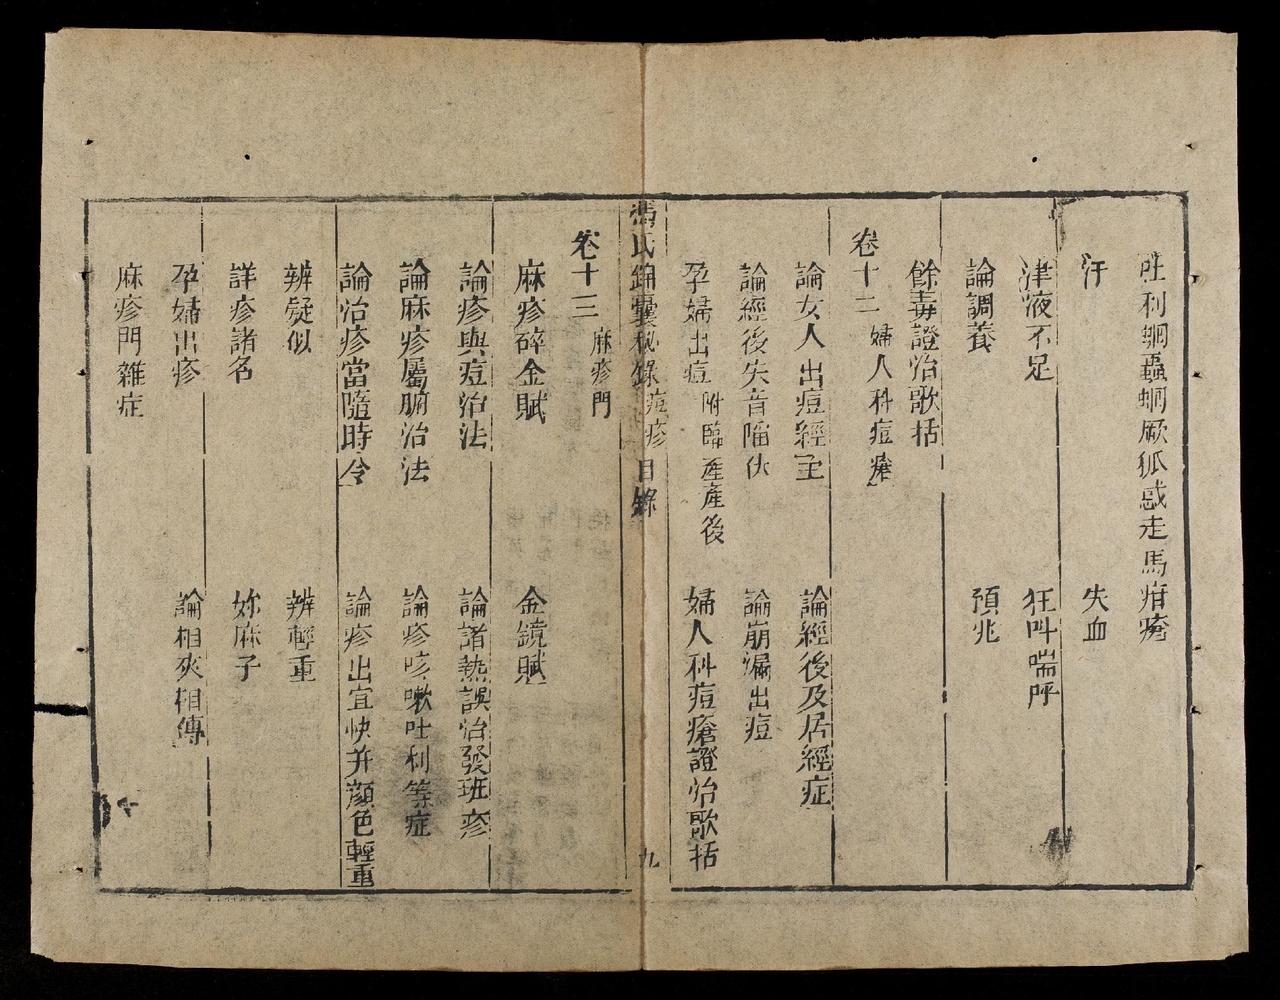 吐利蛔蟲蛔厥狐惑走馬疳瘡
汗 失血
津液不足 狂叫喘呼
論調養 預兆
餘毒證治歌括
卷十二 婦人科痘瘡
論女人出痘經至 論經後及居經症
論經後失音陷伏 論崩漏出痘
孕婦出痘 附臨產產後 婦人科痘瘡證治歌括
馮氏錦囊秘錄 痘疹 目錄 九
卷十三 麻疹門
麻疹碎金賦 金鏡賦
論疹與痘治法 論諸熱誤治發斑疹
論麻疹屬腑治法 論疹咳嗽吐利等症
論治疹當隨時令 論疹出宜快并顏色輕重
辨疑似 辨輕重
詳疹諸名 妳麻子
孕婦出疹 論相夾相傳
麻疹門雜症